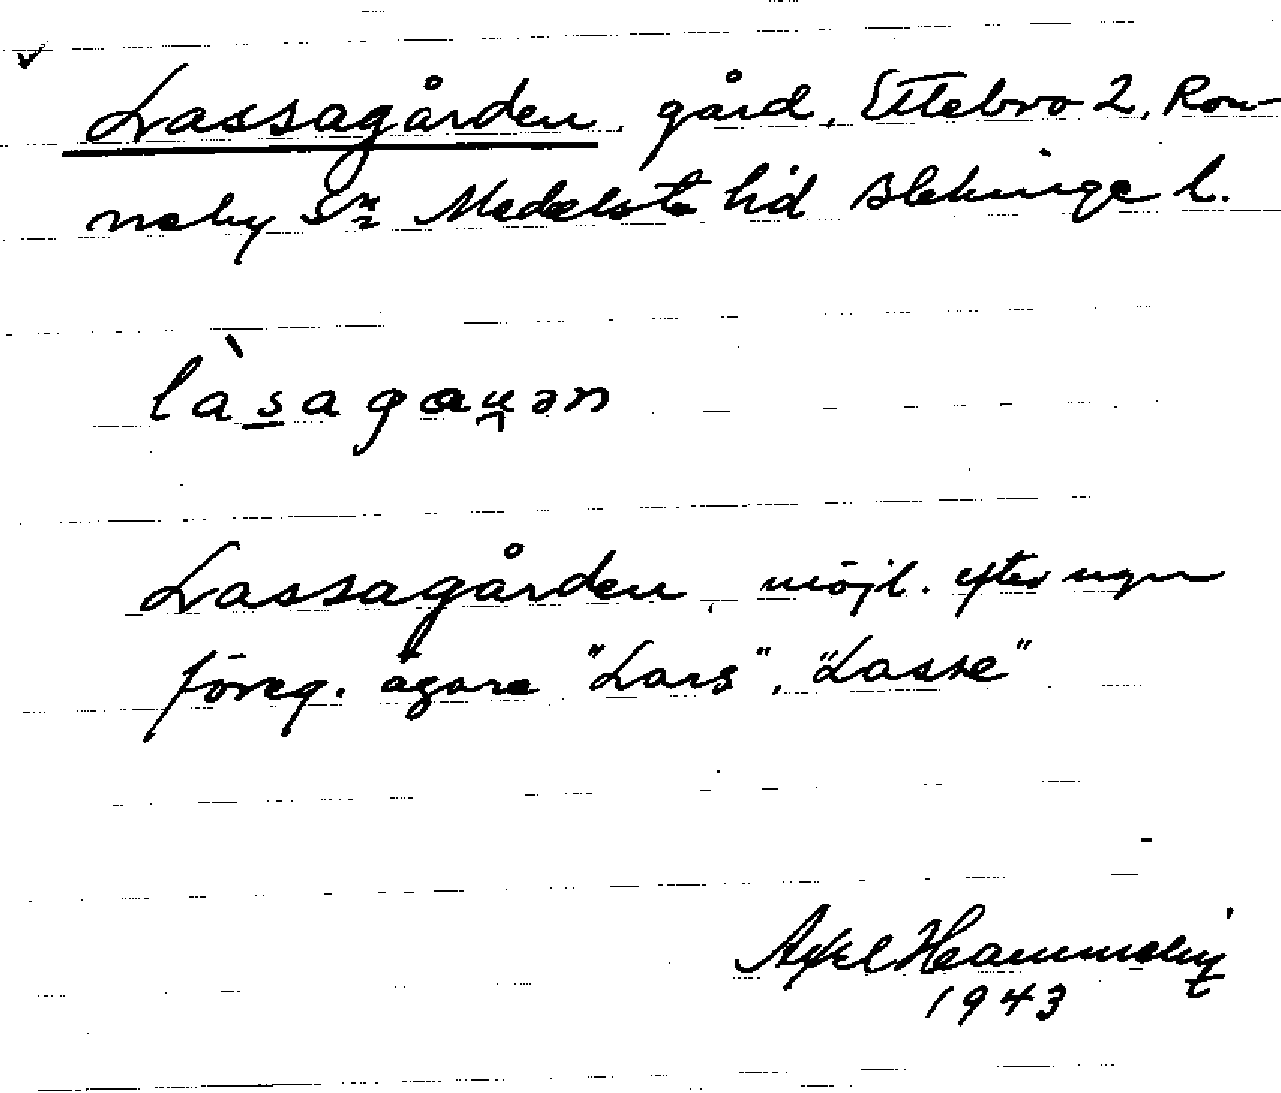 Lassagården, gård, Ettebro 2, Ron-
neby Sn Medelsta hd Blekinge l.
làsagauən
Lassagården, möjl. efter ngn
föreg. ägare "Lars", "Lasse"
Axel
1943